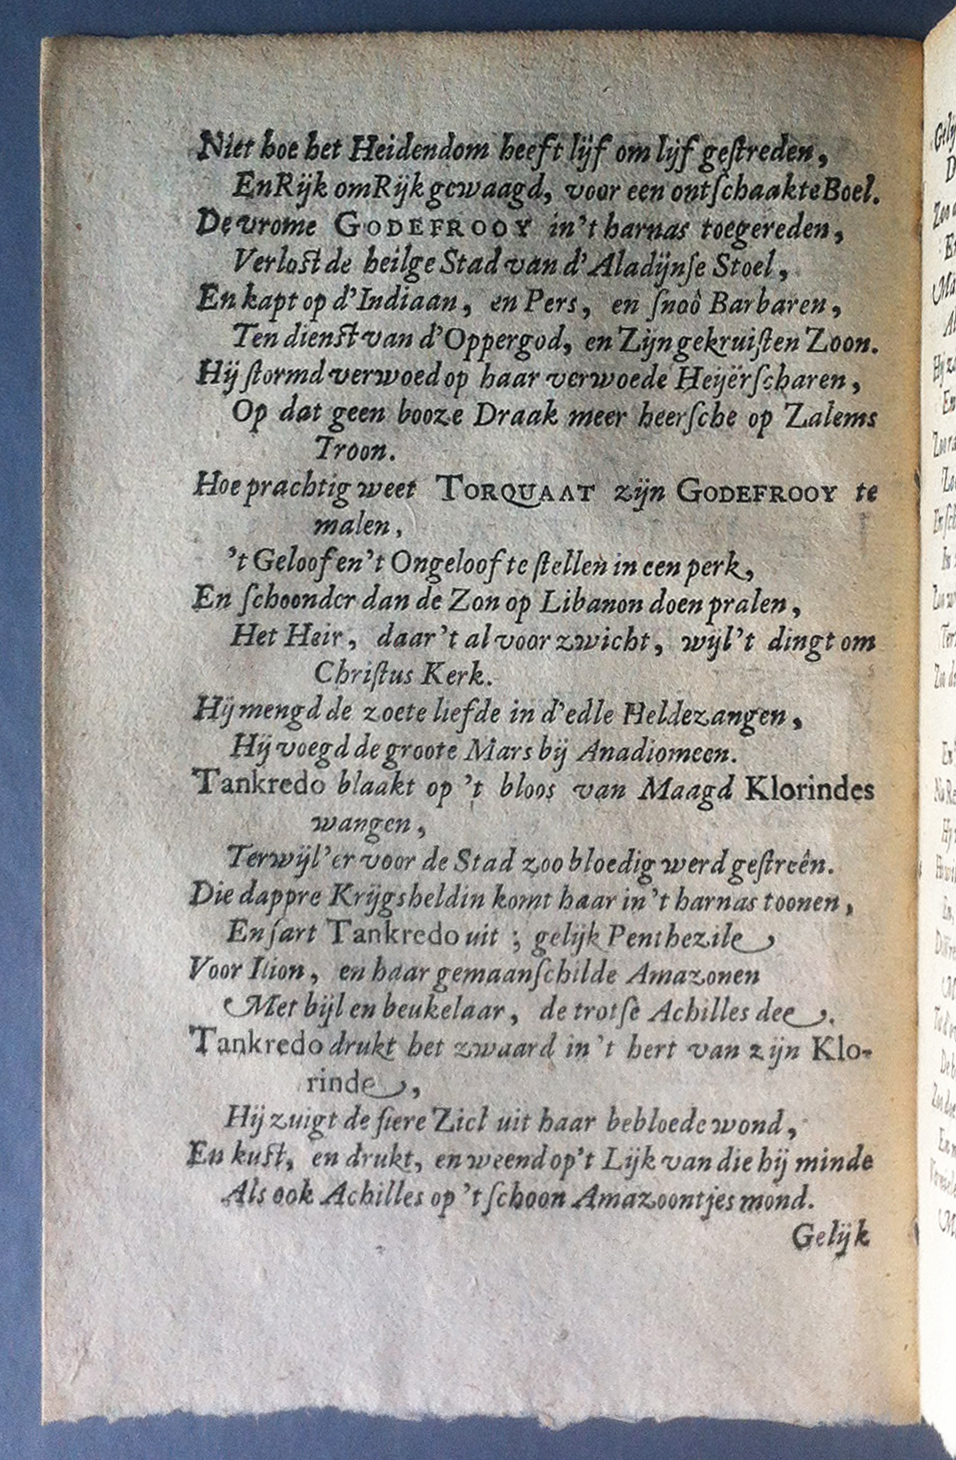 Niet hoe het Heidendom heeft lijf om lijf geſtreden,
En Rijk om Rijk gewaagd, voor een ontſchaakte Boel.
De vrome GODEFROOY in 't harnas toegereden,
Verlost de heilge Stad van d'Aladijnſe Stoel,
En kapt op d'Indiaan, en Pers, en ſnoô Barbaren,
Ten dienst van d'Oppergod, en Zijn gekruiſten Zoon.
Hij ſtormd verwoed op haar verwoede Heijërſcharen,
Op dat geen booze Draak meer heerſche op Zalems
Troon.
Hoe prachtig weet TORQUAAT zijn GODEFROOY te
malen,
't Geloof en 't Ongeloof te ſtellen in een perk,
En ſchoonder dan de Zon op Libanon doen pralen,
Het Heir, daar 't al voor zwicht, wijl 't dingt om
Chriſtus Kerk.
Hij mengd de zoete liefde in d'edle Heldezangen,
Hij voegd de groote Mars bij Anadiomeen.
Tankredo blaakt op 't bloos van Maagd Klorindes
wangen,
Terwijl 'er voor de Stad zoo bloedig werd geſtreên.
Die dappre Krijgsheldin komt haar in 't harnas toonen,
En ſart Tankredo uit; gelijk Penthezile
Voor Ilion, en haar gemaanſchilde Amazonen
Met bijl en beukelaar, de trotſe Achilles dee.
Tankredo drukt het zwaard in 't hert van zijn Klo-
rinde,
Hij zuigt de fiere Ziel uit haar bebloede wond,
En kust, en drukt, en weend op 't Lijk van die hij minde
Als ook Achilles op 't ſchoon Amazoontjes mond.
Gelijk